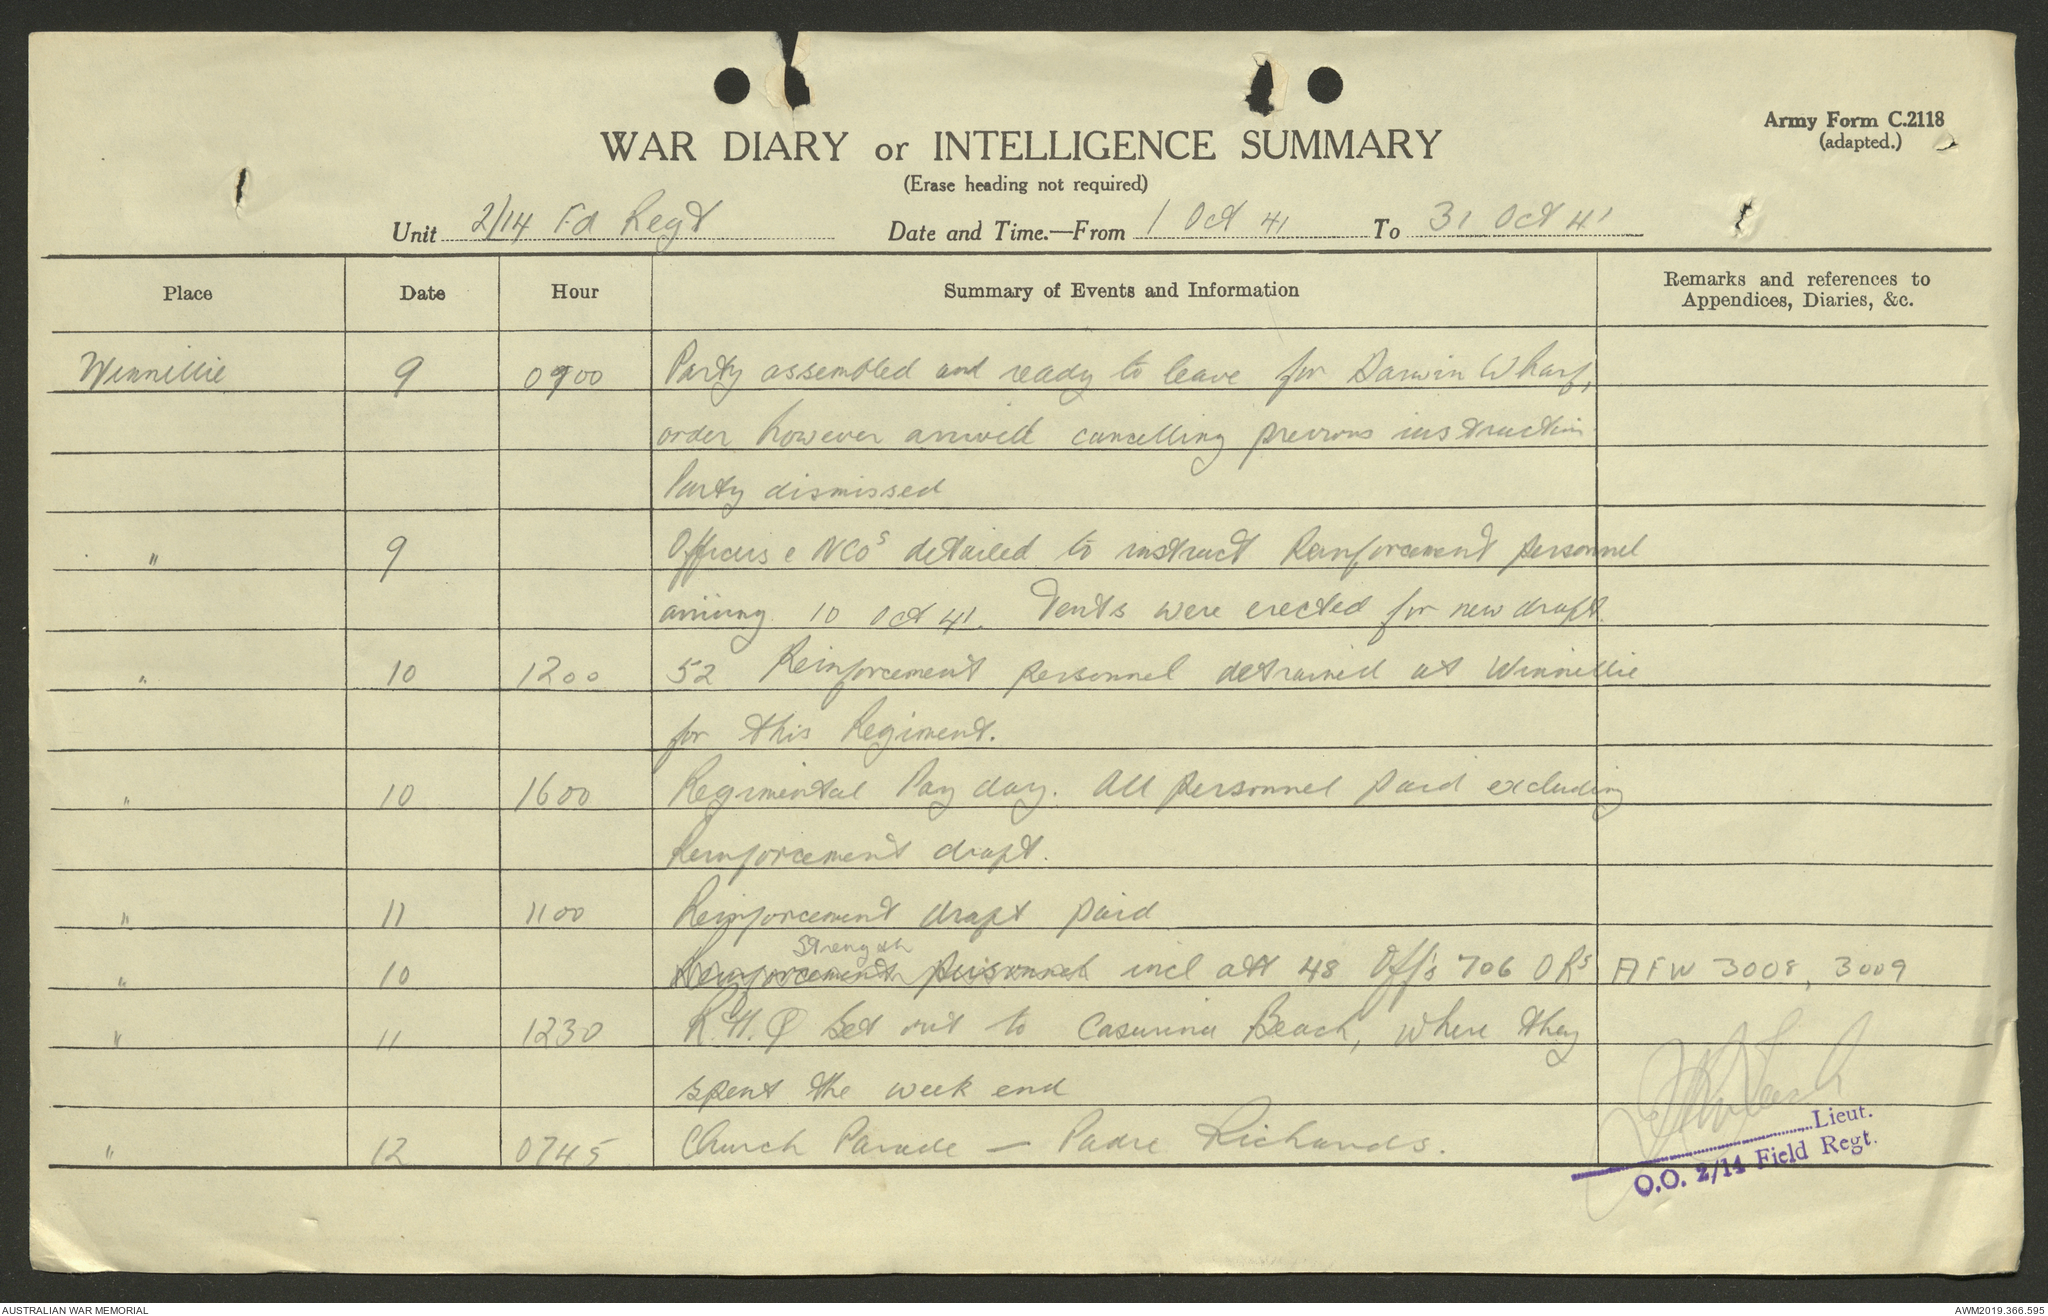 Army Form C.2118
(adapted.)
WAR DIARY or INTELLIGENCE SUMMARY
(Erase heading not required)
Unit 2/14 Fd Regt Date and Time.—From 1 Oct 41 To 31 Oct 41
Place Date Hour Summary of Events and Information Remarks and references to Appendices, Diaries, &c.
Winnellie 9 0900 Party assembled and ready to leave for Darwin Wharf,
order however arrived cancelling previous instruction
Party dismissed
" 9 Officers & NCOs detailed to instruct Reinforcement personnel
arriving 10 Oct 41. Tents were erected for new draft.
" 10 1200 52 Reinforcement personnel detrained at Winnellie
for this Regiment.
" 10 1600 Regimental Pay day. All personnel paid excluding
Reinforcement draft.
" 11 1100 Reinforcement draft paid
" 10 Reinforcement personnel Strength incl att 48 Off's 706 ORs AFW 3008, 3009
" 11 1230 R.H.Q set out to Casurina Beach, where they
spent the week end
" 12 0745 Church Parade — Padre Richards.
Lieut.
O.O. 2/14 Field Regt.
AUSTRALIAN WAR MEMORIAL
AWM2019.366.595